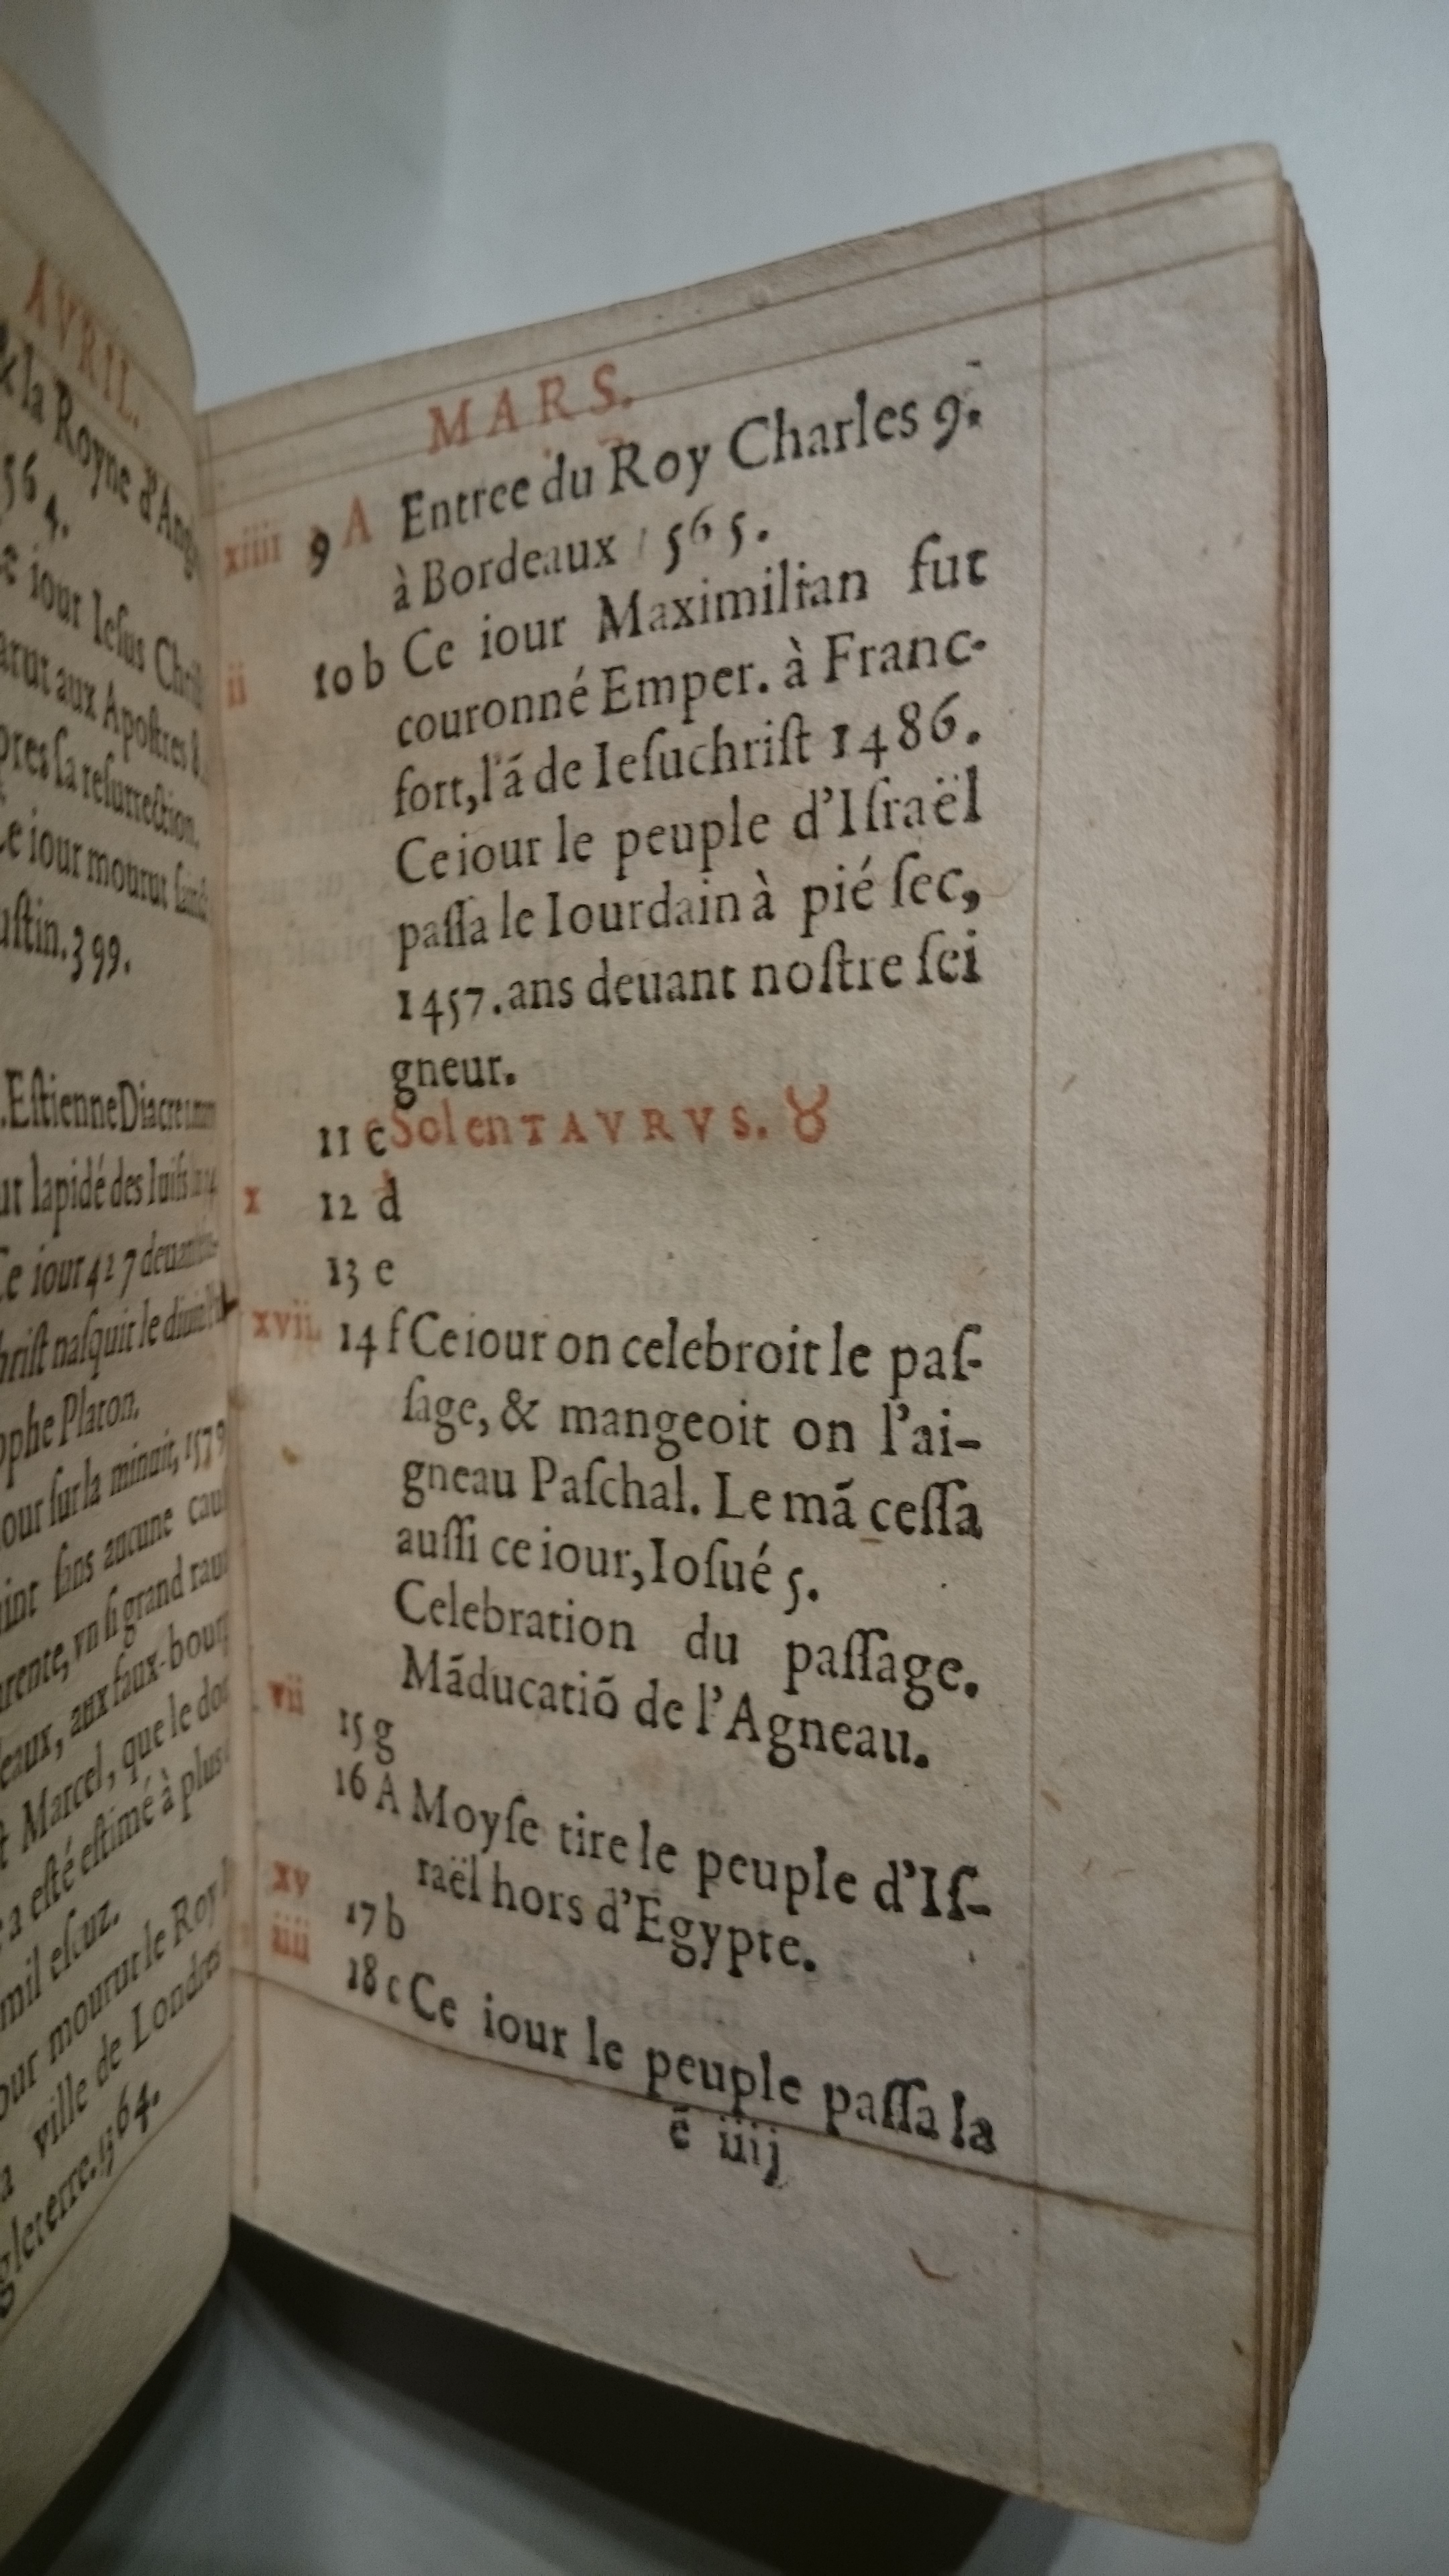 AVRIL.
la Royne d'Ang
564.
iour Iesus Chri
arut aux Apostres 8.
pres sa resurrection.
Ce iour mourut sainct
ustin. 399.
Estienne Diacre
ut lapidé des Iuifs
Ce iour 427 deuant
hrist nasquit le diuin
ophe Platon.
our sur la minuit, 1579
int sans aucune cau
arente, vn si grand rau
eaux, aux faux-bour
t Marcel, que le do
a esté estimé à plus
mil escuz.
our mourut le Roy
a ville de Londres
gleterre. 1564.
MARS.
xiiii 9 A Entree du Roy Charles 9.
à Bordeaux 1565.
ii 10 b Ce iour Maximilian fut
couronné Emper. à Franc-
fort, l'ā de Iesuchrist 1486.
Ce iour le peuple d'Israël
passa le Iourdain à pié sec,
1457. ans deuant nostre sei
gneur.
11 c Sol en TAVRVS. ♉
x 12 d
13 e
xvii. 14 f Ce iour on celebroit le pas-
sage, & mangeoit on l'ai-
gneau Paschal. Le mā cessa
aussi ce iour, Iosué 5.
Celebration du passage.
Māducatiō de l'Agneau.
vii 15 g
16 A Moyse tire le peuple d'Is-
raël hors d'Egypte.
xv 17 b
iiii 18 c Ce iour le peuple passa la
ē iiij